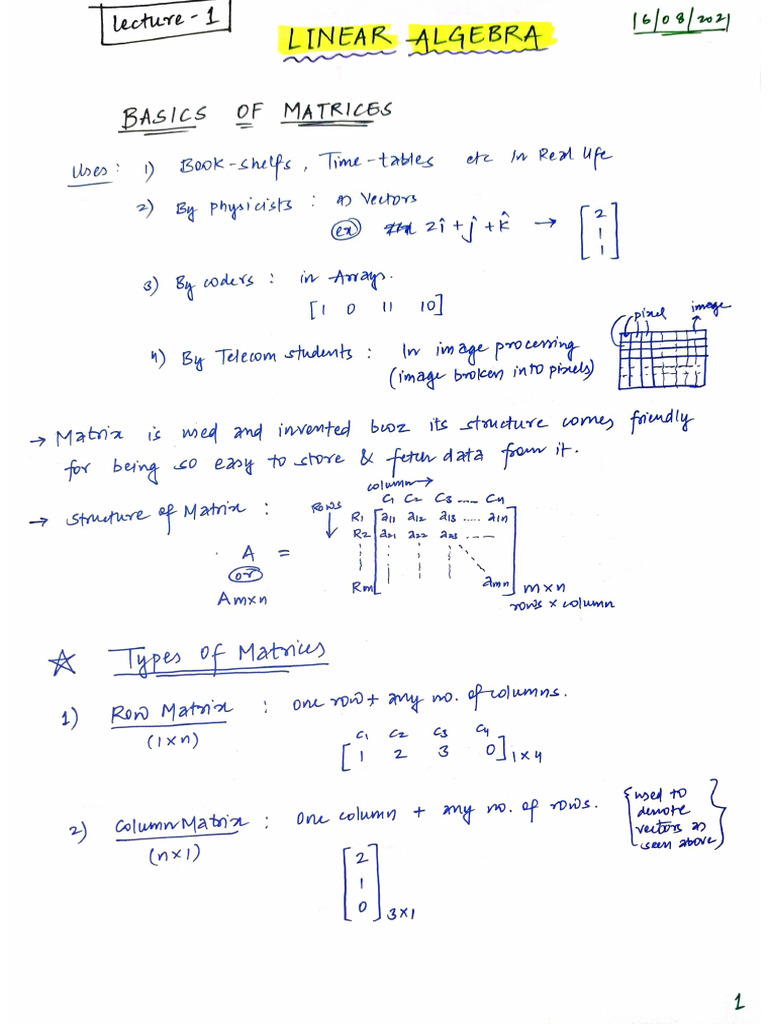 Lecture - 1
16/08/2021
LINEAR ALGEBRA
BASICS OF MATRICES
Uses : 1) Book-shelfs, Time-tables etc in Real life
2) By physicists : as Vectors
(ex) 2î + ĵ + k̂ → [2 1 1]
3) By coders : in Arrays.
[1 0 11 10]
pixel image
4) By Telecom students : In image processing
(image broken into pixels)
→ Matrix is used and invented bcoz its structure comes friendly
for being so easy to store & fetch data from it.
→ Structure of Matrix :
column →
Rows ↓
C1 C2 C3 ..... Cn
R1 a11 a12 a13 ..... a1n
R2 a21 a22 a23 .....
A =
(or)
Rm amn m×n
Am×n
rows × column
☆ Types of Matrices
1) Row Matrix : one row + any no. of columns.
(1×n)
C1 C2 C3 C4
[1 2 3 0] 1×4
2) Column Matrix : one column + any no. of rows.
(n×1)
{used to
denote
vectors as
seen above}
[2
1
0] 3×1
1